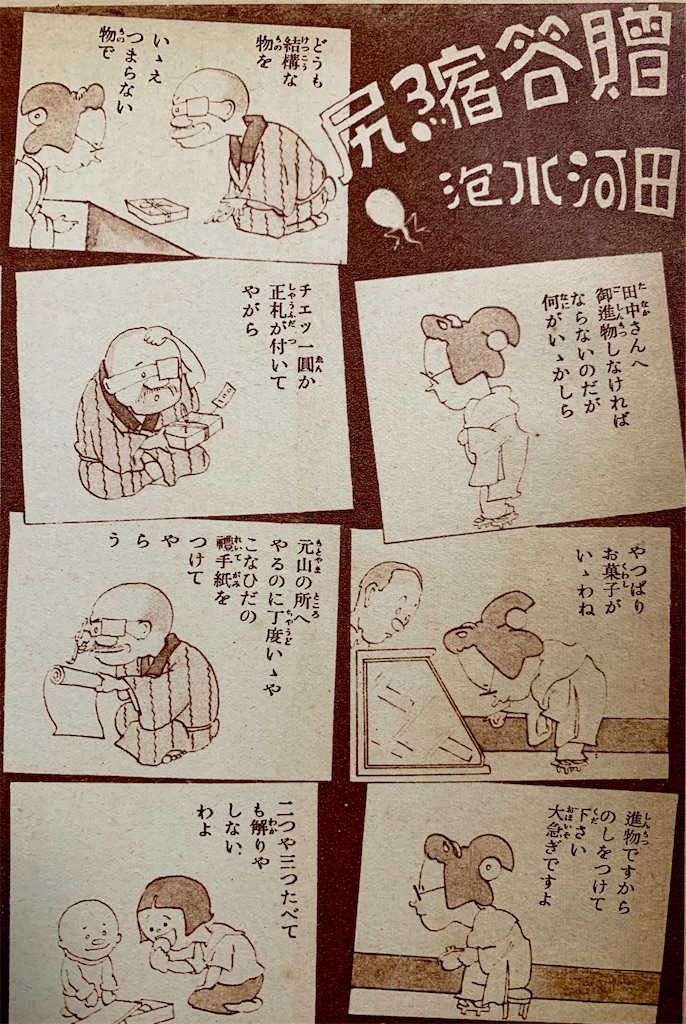 贈答縮尻
田河水泡
田中さんへ
御進物しなければ
ならないのだが
何がいゝかしら
やつぱり
お菓子が
いゝわね
進物ですから
のしをつけて
下さい
大急ぎですよ
どうも
結構な
物を
いゝえ
つまらない
物で
チェッ一圓か
正札が付いて
やがら
元山の所へ
やるのに丁度いゝや
こなひだの
禮手紙を
つけて
やらう
二つや三つたべて
も解りや
しない
わよ